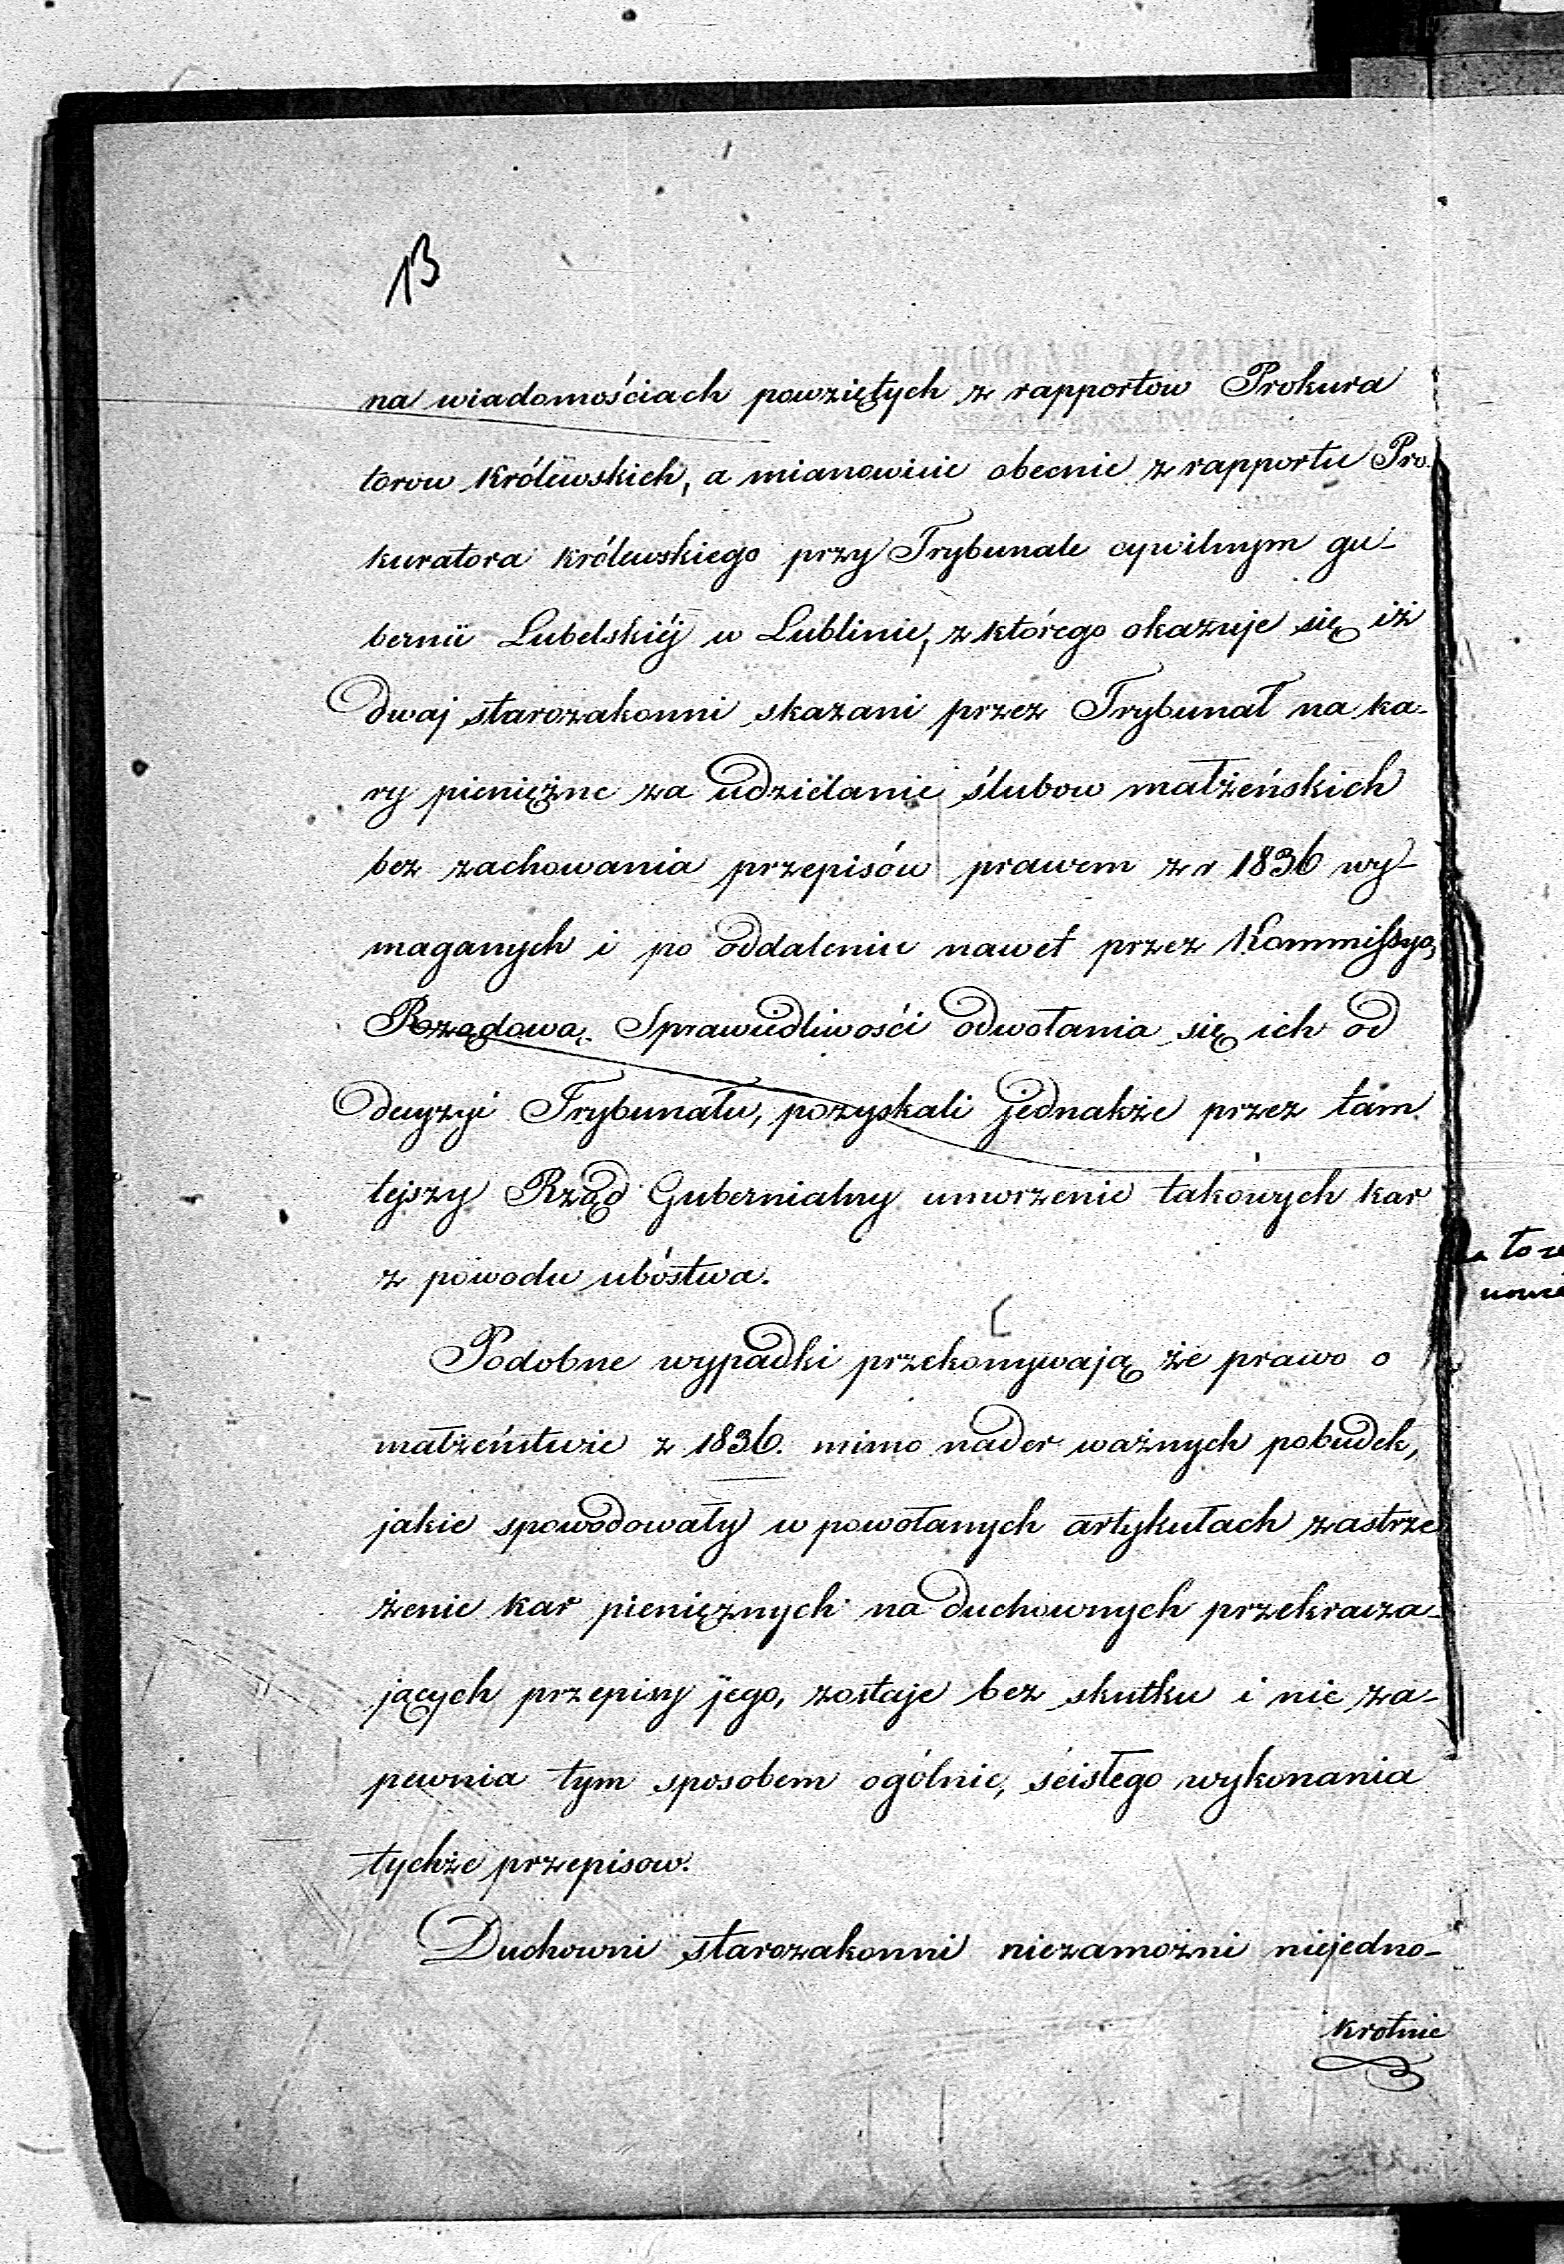 13
na wiadomościach powziętych z rapportow Prokura
torow Królewskich, a mianowicie obecnie z rapportu Pro-
kuratora Królewskiego przy Trybunale cywilnym gu-
bernii Lubelskiéj w Lublinie, z którego okazuje się iż
dwaj starozakonni skazani przez Trybunał na ka-
ry pieniężne za udzielanie ślubow małżeńskich
bez zachowania przepisów prawem z r 1836 wy-
maganych i po oddaleniu nawet przez Kommissyą
Rządową Sprawiedliwości odwołania się ich od
decyzyi Trybunału, pozyskali jednakże przez tam
tejszy Rząd Gubernialny umorzenie takowych kar
z powodu ubóstwa.
Podobne wypadki przekonywają że prawo o
małżeństwie z 1836. mimo nader ważnych pobudek,
jakie spowodowały w powołanych artykułach zastrze
żenie kar pieniężnych na duchownych przekracza-
jących przepisy jego, zostaje bez skutku i nie za-
pewnia tym sposobem ogólnie, ścisłego wykonania
tychże przepisow.
Duchowni starozakonni niezamożni niejedno-
krotnie